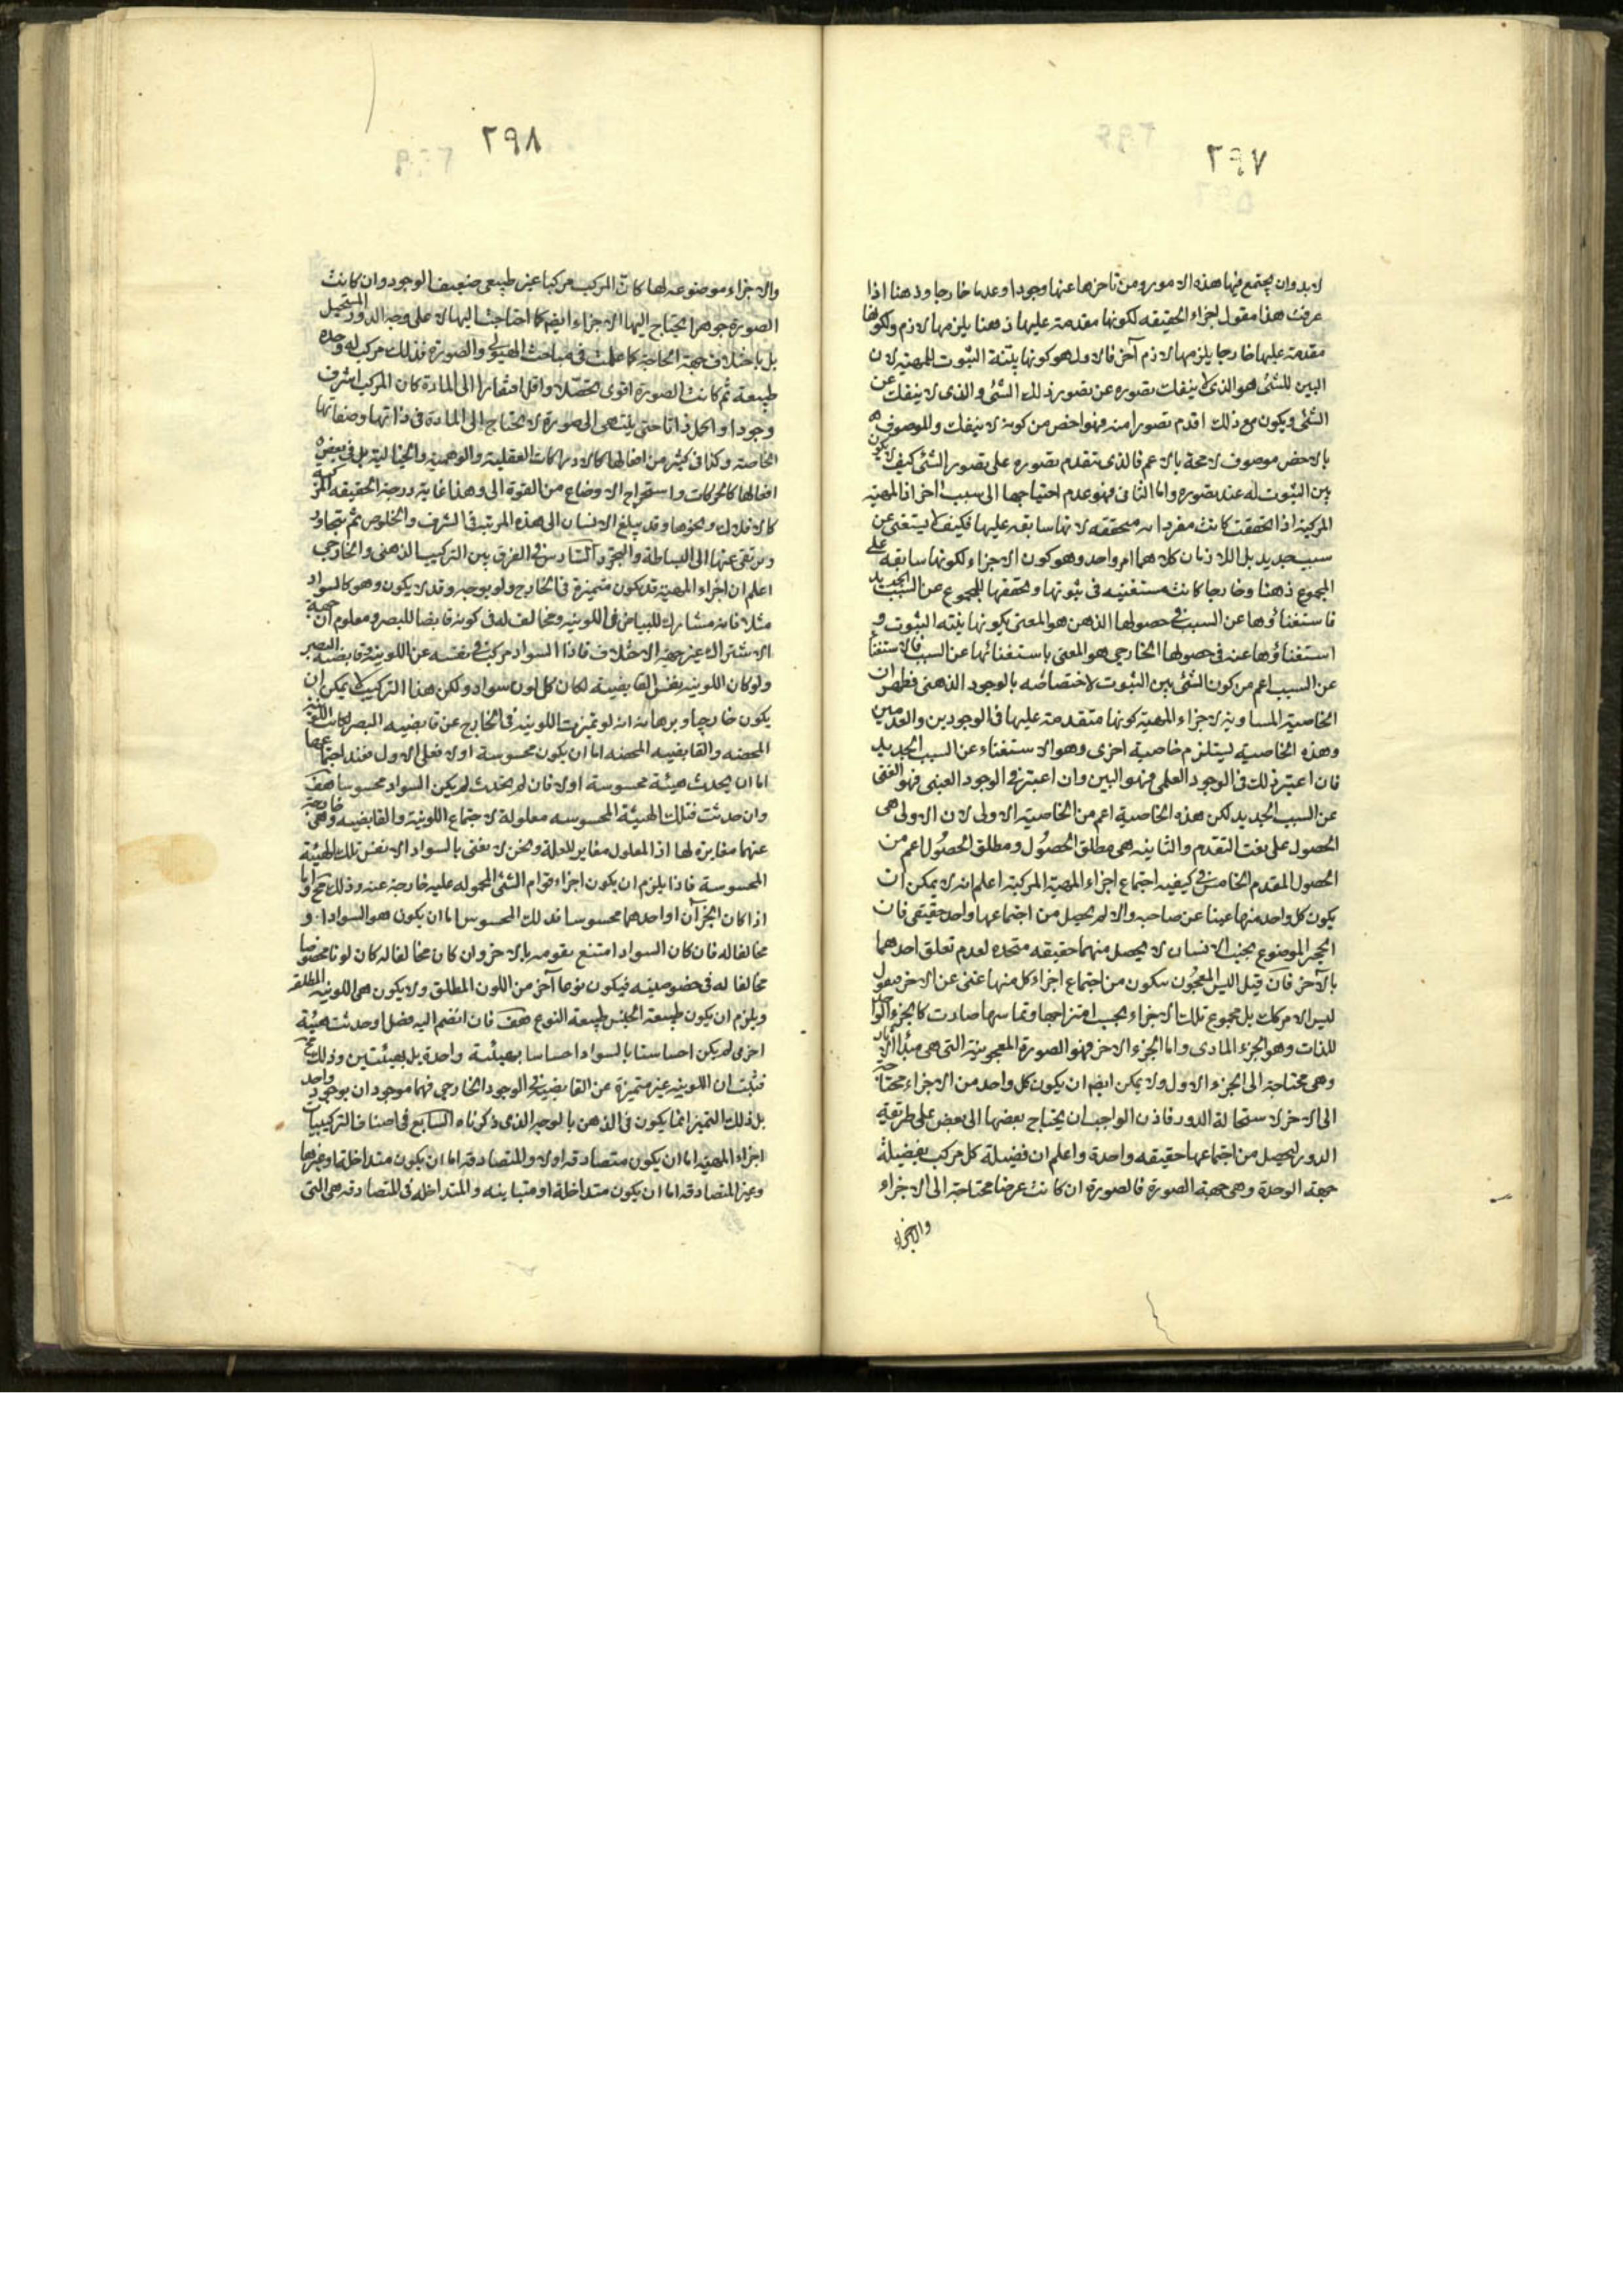 ٢٩٧
لابد وان يجتمع فيها هذه الامور ومن تاخرها عنها وجودا وعدما خارجا وذهنا اذا
عرفت هذا فنقول اجزاء الحقيقه لكونها مقدمة عليها ذهنا يلزمها لازم ولكونها
مقدمة عليها خارجا يلزمها لازم آخر فالاول هو كونها بيّنة الثبوت للمهية لان
البين للشئ هو الذى لا ينفك تصوره عن تصور ذلك الشئ والذى لا ينفك عن
الشئ ويكون مع ذلك اقدم تصورا منه فهو اخص من كونه لا ينفك والموصوف
بالاخص موصوف لا محة بالاعم فالذى يتقدم تصوره على تصور الشئ كيف لا يكون
بين الثبوت له عند تصوره واما الثانى فهو عدم احتياجها الى سبب اخر اذ المهية
المركبة اذا تحققت كانت مفرداته متحققه لانها سابقه عليها فكيف لا يستغنى عن
سبب جديد بل اللازمان كلاهما امر واحد وهو كون الاجزاء لكونها سابقه على
المجموع ذهنا وخارجا كانت مستغنيه فى ثبوتها وتحققها للمجموع عن السبب الجديد
فاستغناؤها عن السبب فى حصولها الذهن هو المعنى بكونها بينة الثبوت و
استغناؤها عنه فى حصولها الخارجى هو المعنى باستغنائها عن السبب فالاستغناء
عن السبب اعم من كون الشئ بين الثبوت لاختصاصه بالوجود الذهنى فظهر ان
الخاصية المساوية لاجزاء المهية كونها متقدمة عليها فى الوجودين والعدمين
وهذه الخاصيه ليستلزم خاصية اخرى وهو الاستغناء عن السبب الجديد
فان اعتبر ذلك فى الوجود العلمى فهو البين وان اعتبر فى الوجود العينى فهو الغنى
عن السبب الجديد لكن هذه الخاصية اعم من الخاصية الاولى لان الاولى هى
الحصول على نعت التقدم والثانيه هى مطلق الحصول ومطلق الحصول اعم من
الحصول المقدم الخامس فى كيفيه اجتماع اجزاء المهية المركبة اعلم انه لا يمكن ان
يكون كل واحد منها غنيا عن صاحبه والا لم يحصل من اجتماعها واحد حقيقى فان
الحجر الموضوع بجنب الانسان لا يحصل منهما حقيقه متحده لعدم تعلق احدهما
بالآخر فان قيل اليس المعجون يتكون من اجتماع اجزاء كل منها غنى عن الاخر فنقول
ليس الامر كك بل مجموع تلك الاجزاء بحسب امتزاجها وتماسها صارت كالجزء الواحد
للذات وهو الجزء المادى واما الجزء الاخر فهو الصورة المعجونية التى هى مبدا الآثار
وهى محتاجة الى الجزء الاول ولا يمكن ايضم ان يكون كل واحد من الاجزاء محتاجة
الى الاخر لاستحالة الدور فاذن الواجب ان يحتاج بعضها الى بعض على طريقة
الدور ليحصل من اجتماعها حقيقه واحدة واعلم ان فضيلة كل مركب بفضيلة
جهة الوحدة وهى جهة الصورة فالصورة ان كانت عرضا محتاجة الى الاجزاء
والاجزاء
٢٩٨
والاجزاء موضوعه لها كان المركب مركبا غير طبيعى ضعيف الوجود وان كانت
الصورة جوهرا يحتاج اليها الاجزاء ايضم كما احتاجت اليها لا على وجه الدور المستحيل
بل باختلاف جهة الحاجة كما علمت فى مباحث الهيولى والصورة فذلك مركب له وحده
طبيعة ثم كانت الصورة اقوى تحصّلا واقل افتقارا الى المادة كان المركب اشرف
وجودا واكمل ذاتا حتى ينتهى الى صورة لا يحتاج الى المادة فى ذاتها وصفاتها
الخاصة وكذا فى كثير من افعالها كالادراكات العقلية والوهمية والخيالية بل فى بعض
افعالها كالحركات واستخراج الاوضاع من القوة الى وهذا غاية درجة الحقيقه المركبه
كالافلاك ونحوها وقد يبلغ الانسان الى هذه المرتبه فى الشرف والخلوص ثم يتجاوز
ويرتقى عنها الى البساطة والتجرد السادس فى الفرق بين التركيب الذهنى والخارجى
اعلم ان اجزاء المهية قد يكون متميزة فى الخارج ولو بوجه وقد لا يكون وهو كالسواد
مثلا فانه مشارك للبياض فى اللونية ومخالف له فى كونه قابضا للبصر ومعلوم ان جهة
الاشتراك غير جهة الاختلاف فاذا السواد مركب فى نفسه عن اللونية وقابضية البصر
ولو كان اللونيه نفس القابضيه لكان كل لون سواد ولكن هذا التركيب لا يمكن ان
يكون خارجيا وبرهانه انه لو تميزت اللونيه فى الخارج عن قابضيه البصر لكانت اللونية
المحضه والقابضيه المحضه اما ان يكون محسوسة اولا فعلى الاول فعند اجتماعهما
اما ان يحدث هيئة محسوسة اولا فان لم يحدث لم يكن السواد محسوسا هف
وان حدثت فتلك الهيئة المحسوسه معلولة لاجتماع اللونية والقابضيه وهى خارجة
عنهما مغايرة لها اذ المعلول مغاير للعلة ونحن لا نعنى بالسواد الا نفس تلك الهيئة
المحسوسة فاذا يلزم ان يكون اجزاء قوام الشئ المحموله عليه خارجة عنه وذلك مح واما
اذا كان الجزآن او احدهما محسوسا فذلك المحسوس اما ان يكون هو السواد او
مخالفا له فان كان السواد امتنع تقومه بالاخر وان كان مخالفا له كان لونا مخصوصا
مخالفا له فى خصوصيته فيكون نوعا آخر من اللون المطلق ولا يكون هى اللونيه المطلقه
ويلزم ان يكون طبيعة الجنس طبيعة النوع هف فان انضم اليه فصل او حدثت هيئة
اخرى لم يكن احساسنا بالسواد احساسا بهيئة واحدة بل بهيئتين وذلك مح
فثبت ان اللونيه غير متميزة عن القابضية فى الوجود الخارجى فهما موجودان بوجود واحد
بل ذلك التميز انما يكون فى الذهن بالوجه الذى ذكرناه السابع فى اصناف التركيبات
اجزاء المهية اما ان يكون متصادقه اولا والمتصادقه اما ان يكون متداخلة او غيرها
وغير المتصادقه اما ان يكون متداخلة او متباينه والمتداخله فى المتصادقه هى التى